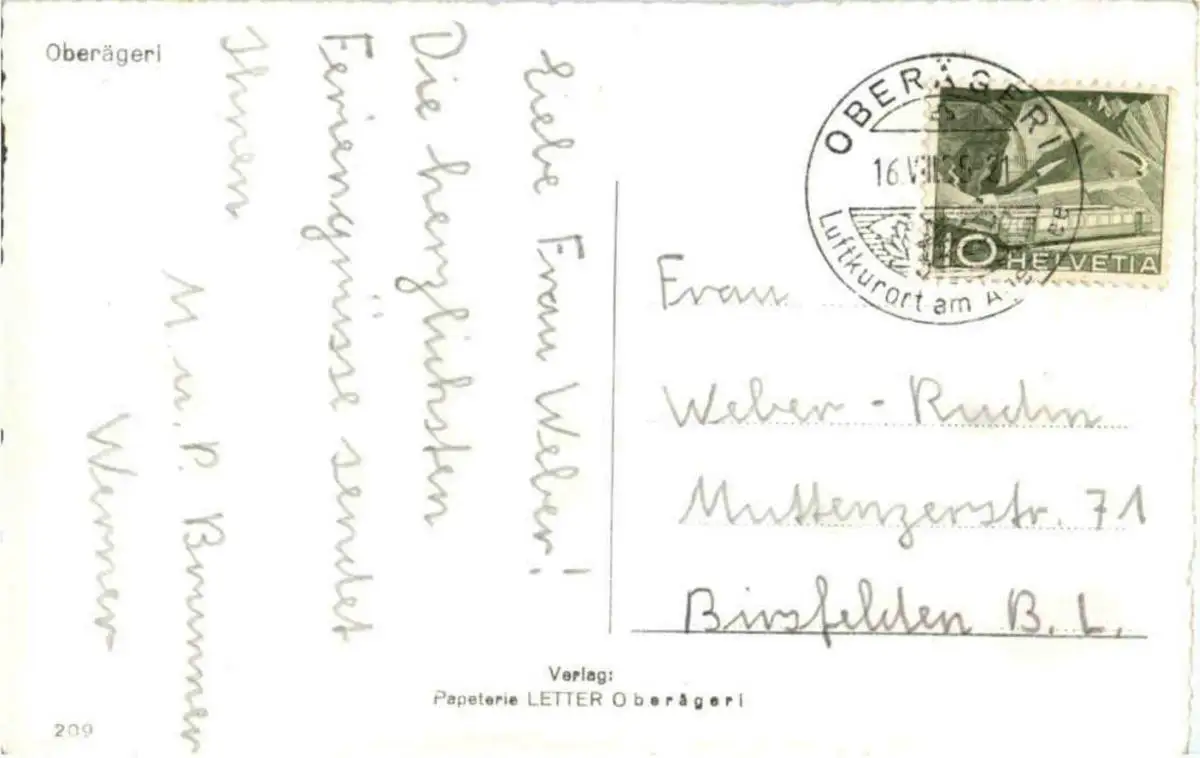 Oberägeri
Liebe Frau Weber!
Die herzlichsten
Feriengrüsse sendet
Ihnen
M. u. P. Brunner
Werner
OBERÄGERI
16.VIII.55-21
Luftkurort am Ägerisee
10 HELVETIA
Frau
Weber - Rudin
Muttenzerstr. 71
Birsfelden B. L.
Verlag:
Papeterie LETTER Oberägeri
209